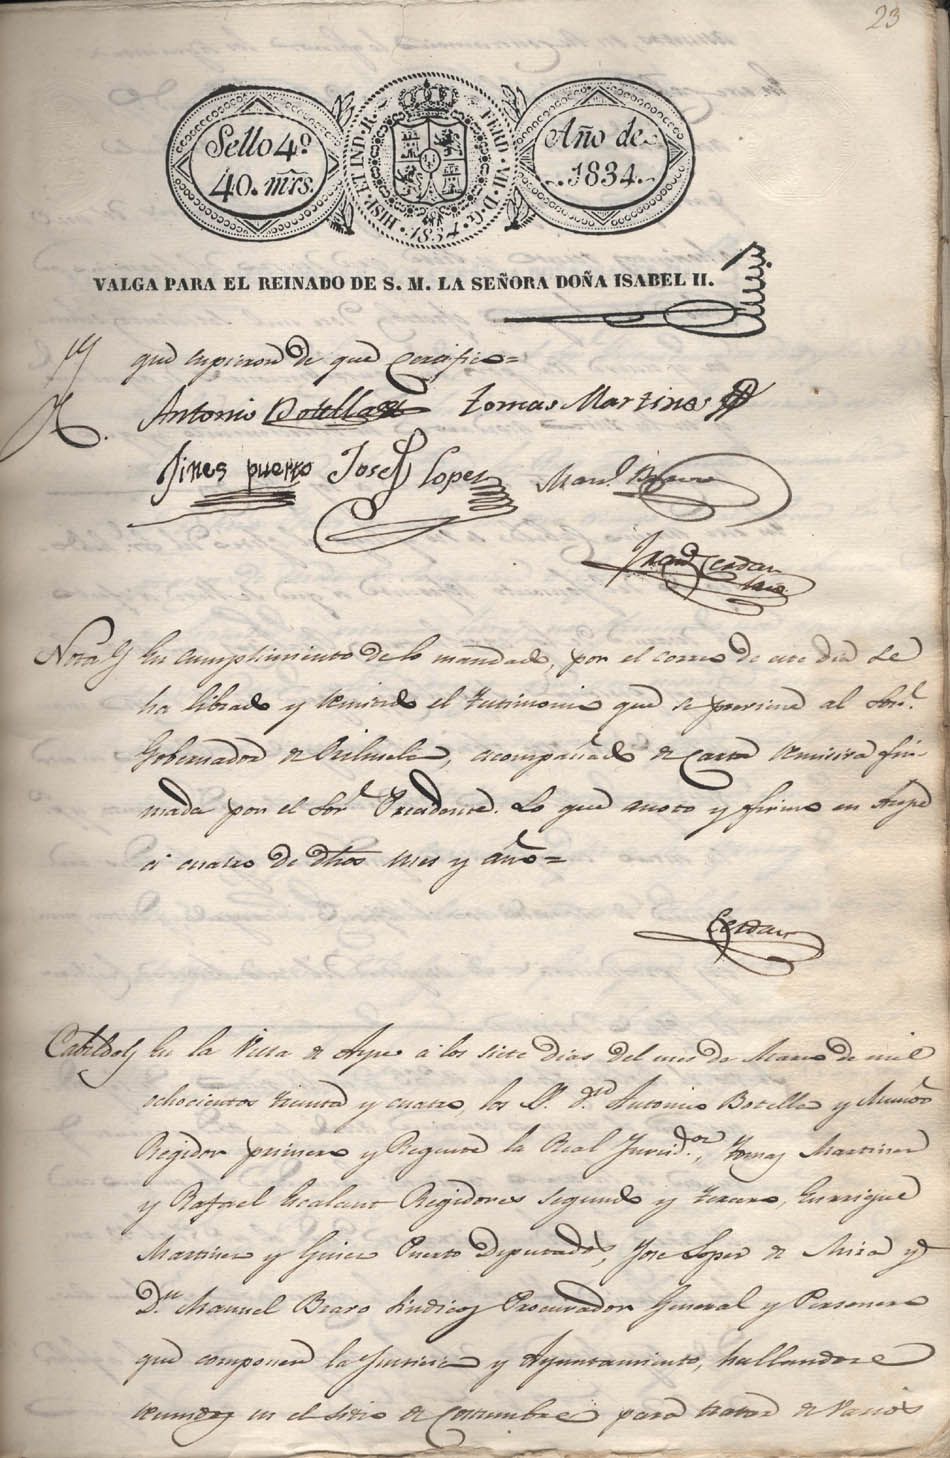 23
Sello 4º
40. mrs.
HISP. ET IND. R. FERD. VII. D. G. 1834.
Año de
1834.
VALGA PARA EL REINADO DE S. M. LA SEÑORA DOÑA ISABEL II.
que supieron de que certifico=
Antonio Botella Tomas Martines
Jines puerto Josef Lopez Man.l Bravo
Cerdan
Nota En cumplimiento de lo mandado, por el correo de este dia se
ha librado y remitido el testimonio que se previene al Sor.
Gobernador de Orihuela, acompañado de carta remisiva fir
mada por el Sor. Presidente. Lo que anoto y firmo en Aspe
á cuatro de dhos mes y año=
Cerdan
Cabildo En la Villa de Aspe á los siete dias del mes de Marzo de mil
ochocientos treinta y cuatro, los S. D.n Antonio Botella y Muñoz
Regidor primero y Regente la Real Jurisd.on, Tomas Martinez
y Rafael Escalant Regidores segundo y tercero, Enrrique
Martinez y Gines Puerto Diputados, Jose Lopez de Mira y
D.n Manuel Bravo Sindicos Procurador General y Personero
que componen la Justicia y Ayuntamiento, hallandose
reunidos en el sitio de costumbre para tratar de varios